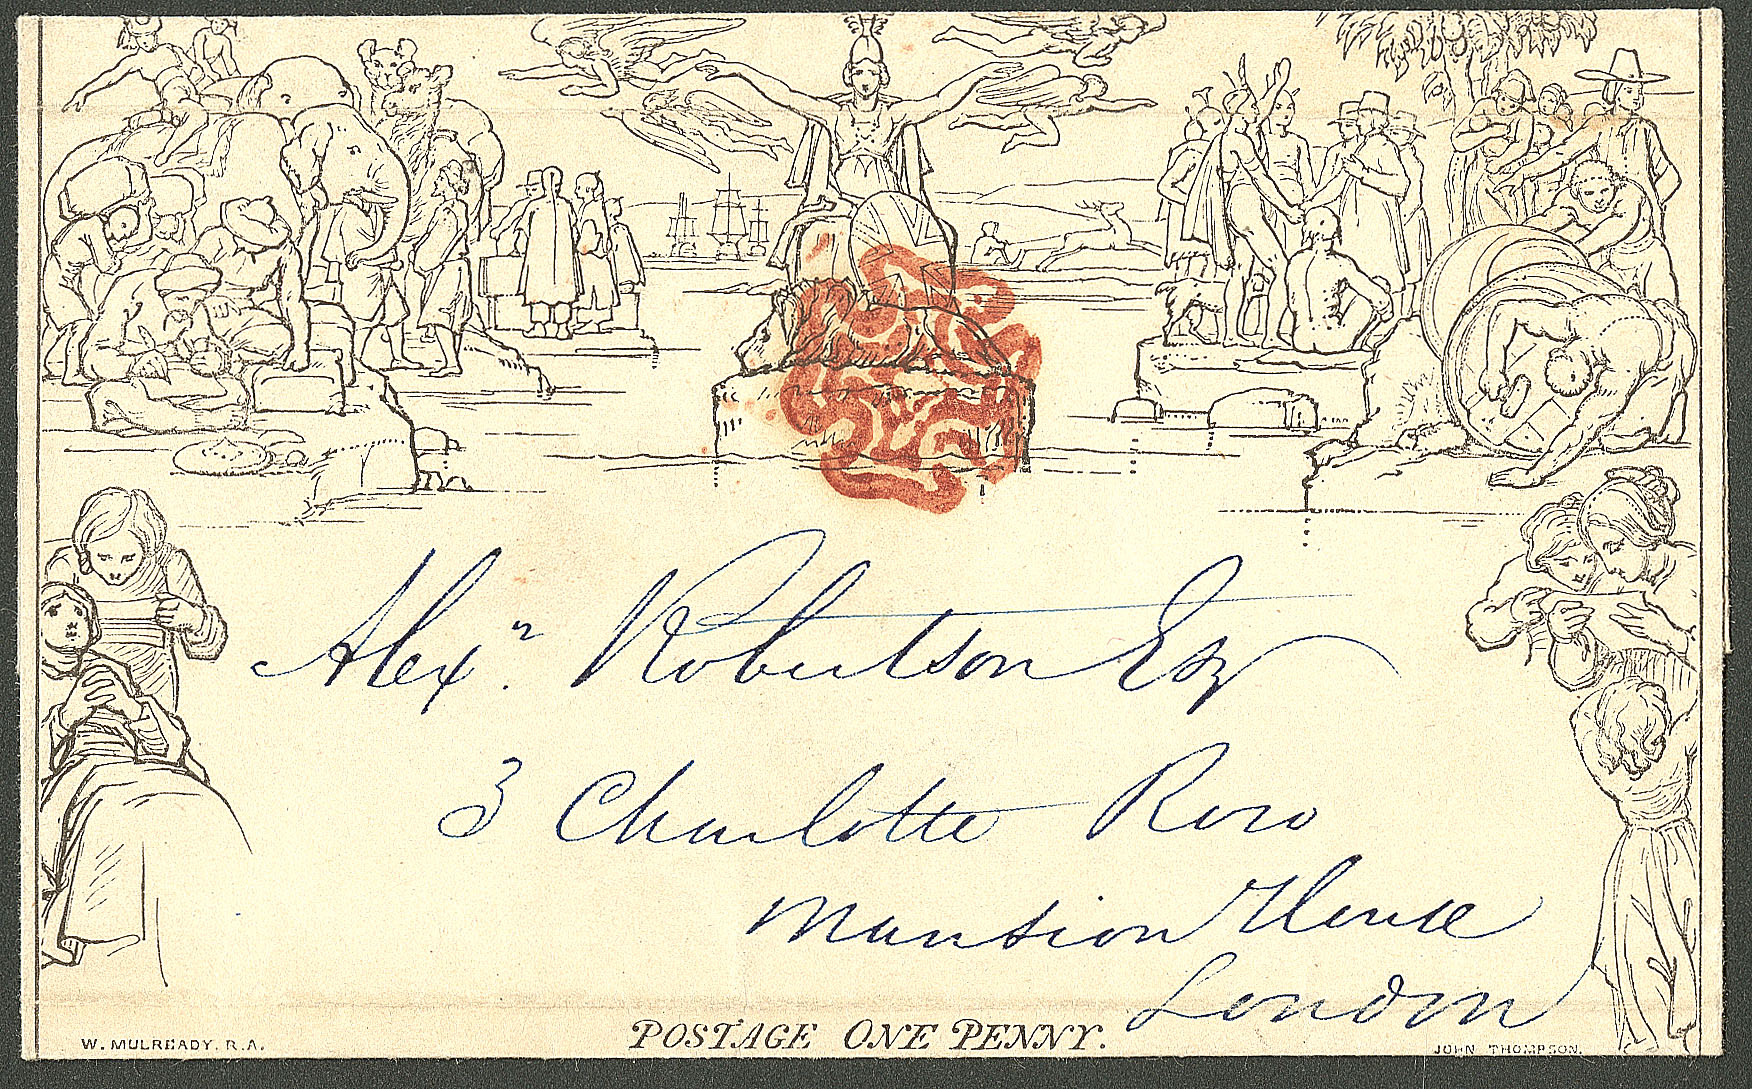 Alexr. Robertson Esq
3 Charlotte Row
Mansion House
London
POSTAGE ONE PENNY.
W. MULREADY. R.A.
JOHN THOMPSON.